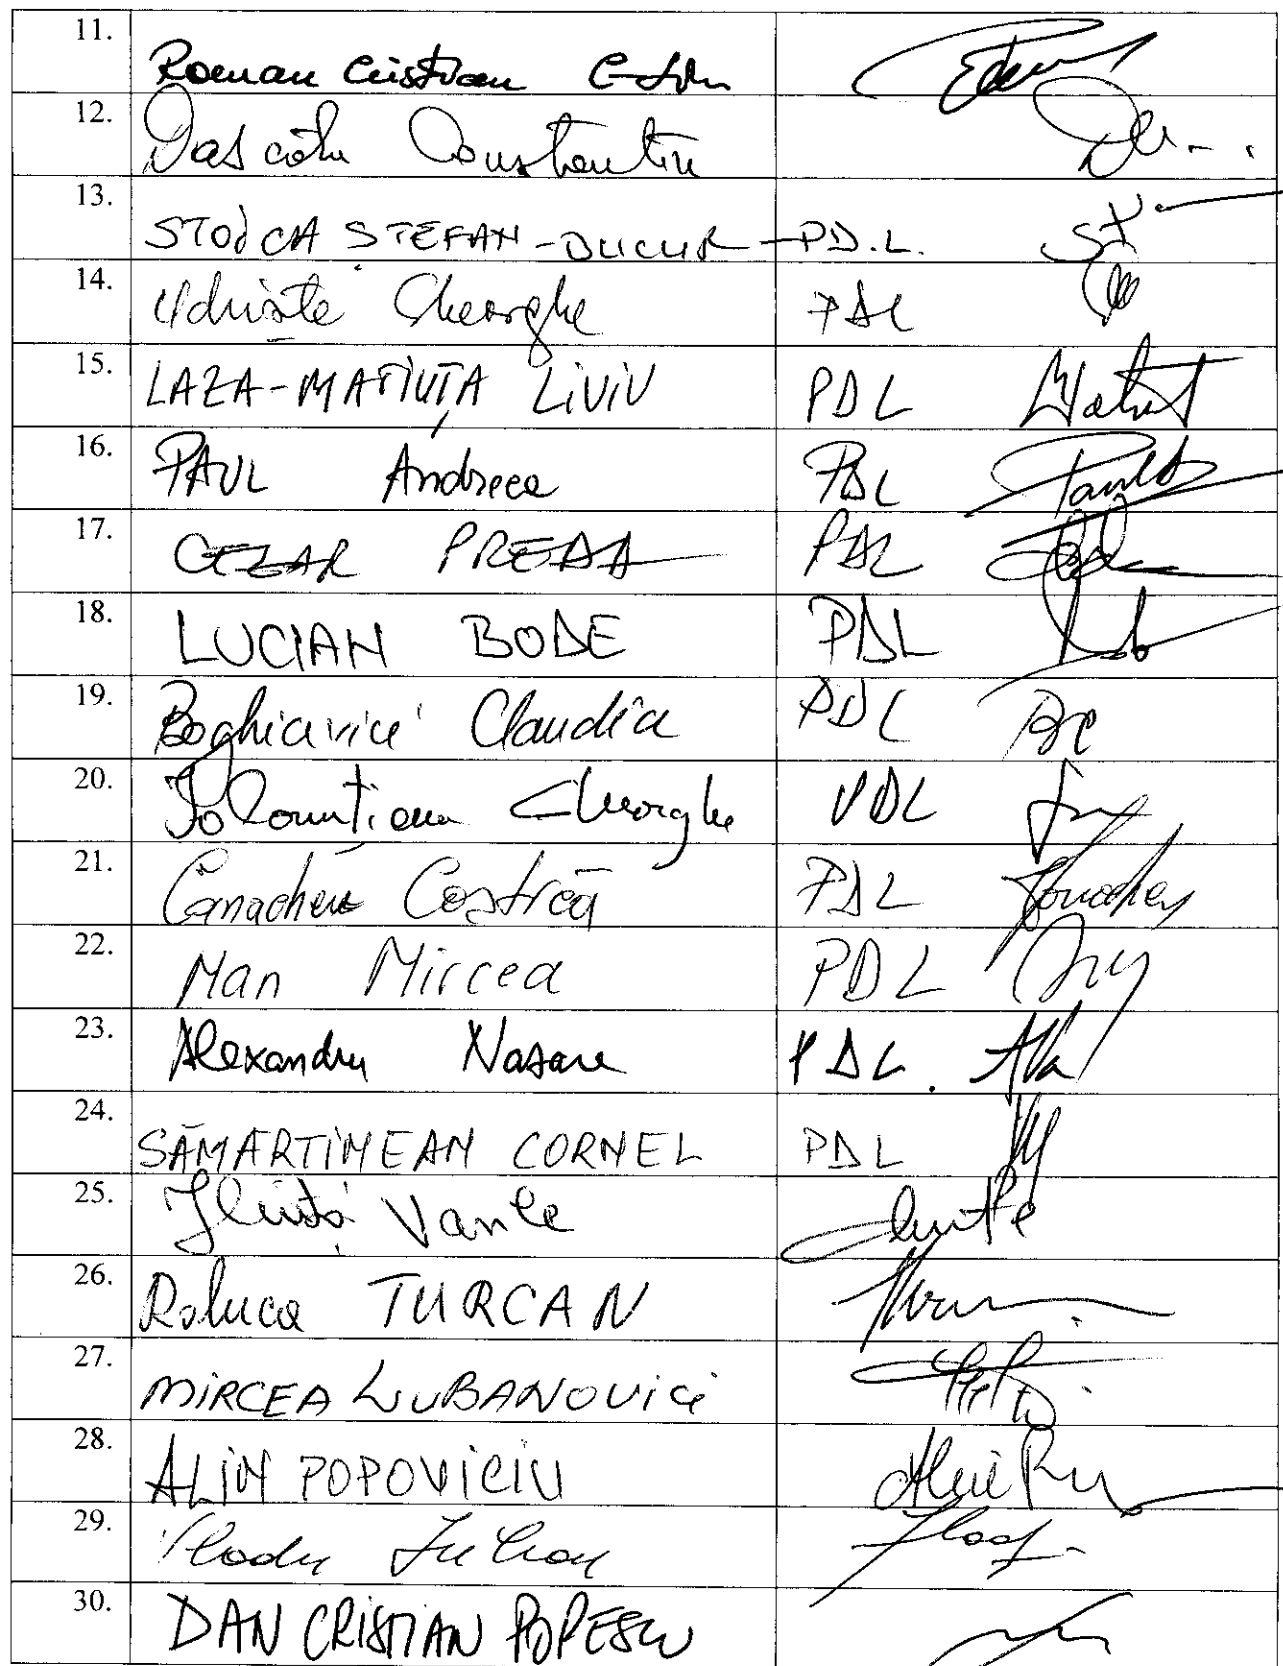 11. Roman Cristian
12. Dascălu Constantin
13. STOICA STEFAN-BUCUR - PD.L.
14. Udriște Gheorghe PDL
15. LAZA-MATIUȚA LiViU PDL
16. PAUL Andreea PDL
17. CEZAR PREDA PDL
18. LUCIAN BODE PDL
19. Boghicevici Claudia PDL
20. Ialomițianu Gheorghe PDL
21. Canacheu Costică PDL
22. Man Mircea PDL
23. Alexandru Nazare PDL.
24. SĂMĂRTINEAN CORNEL PDL
25. Vasile
26. Raluca TURCAN
27. MiRCEA LUBANOViCi
28. ALiN POPOViCiU
29. Vladu Iulian
30. DAN CRISTIAN POPESCU